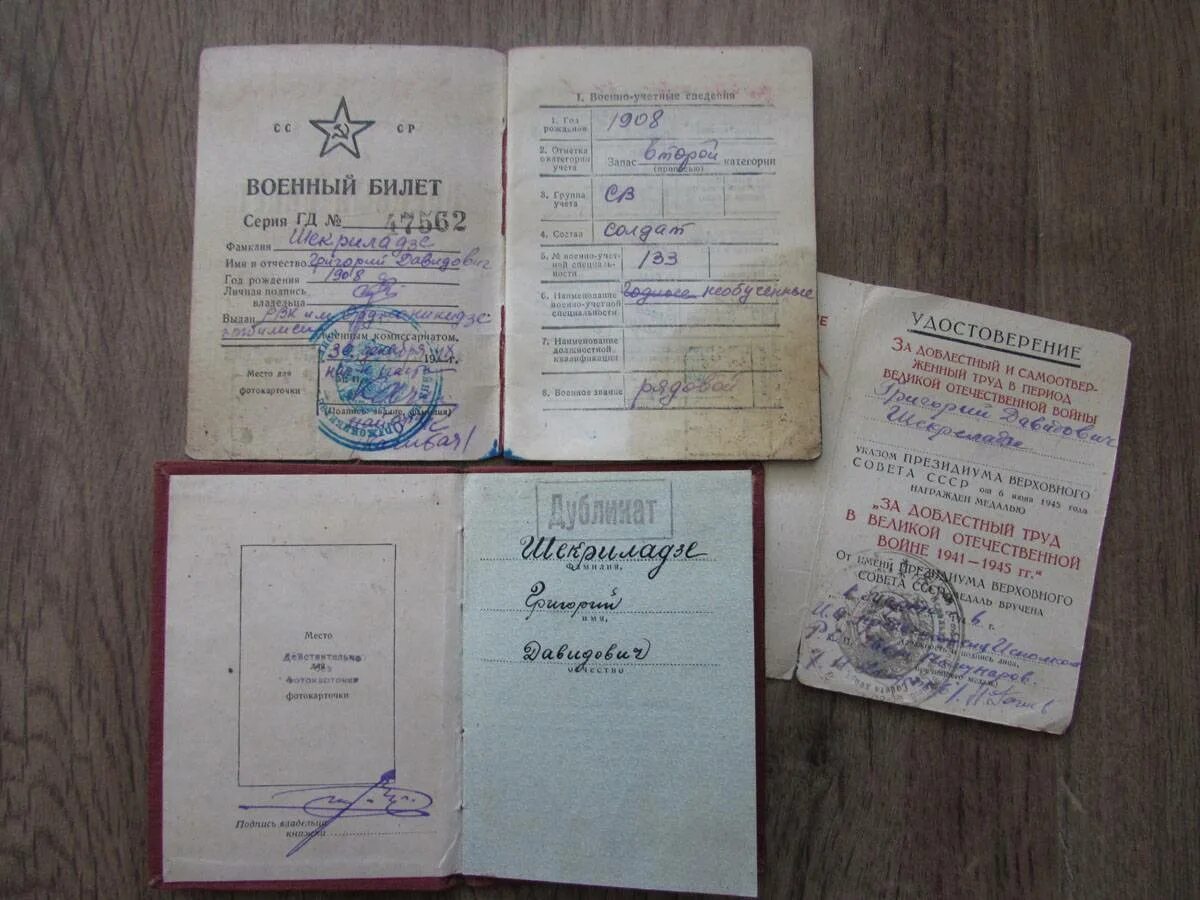 СС СР
ВОЕННЫЙ БИЛЕТ
Серия ГД № 47562
Фамилия Шекриладзе
Имя и отчество Григорий Давидович
Год рождения 1908
Личная подпись
владельца
Выдан РВК им Орджоникидзе
г. Тбилиси
военным комиссариатом.
30 декабря 19 г.
Место для
фотокарточки
(Подпись, звание, фамилия)
1. Военно-учетные сведения
1. Год
рождения 1908
2. Отметка
о категории
учета Запас второй категории
(прописью)
3. Группа
учета СВ
4. Состав солдат
5. № военно-учет-
ной специаль-
ности 133
6. Наименование
военно-учетной
специальности Годные необученные
7. Наименование
должностной
квалификации
8. Военное звание рядовой
УДОСТОВЕРЕНИЕ
ЗА ДОБЛЕСТНЫЙ И САМООТВЕР-
ЖЕННЫЙ ТРУД В ПЕРИОД
ВЕЛИКОЙ ОТЕЧЕСТВЕННОЙ ВОЙНЫ
Григорий Давидович
Шекриладзе
УКАЗОМ ПРЕЗИДИУМА ВЕРХОВНОГО
СОВЕТА СССР от 6 июня 1945 года
НАГРАЖДЕН МЕДАЛЬЮ
„ЗА ДОБЛЕСТНЫЙ ТРУД
В ВЕЛИКОЙ ОТЕЧЕСТВЕННОЙ
ВОЙНЕ 1941—1945 гг."
ОТ ИМЕНИ ПРЕЗИДИУМА ВЕРХОВНОГО
СОВЕТА СССР МЕДАЛЬ ВРУЧЕНА
Дубликат
Шекриладзе
фамилия,
Григорий
имя,
Давидович
отчество
Место
Действительно
для
без
фотокарточки
фотокарточки
Подпись владельца
книжки